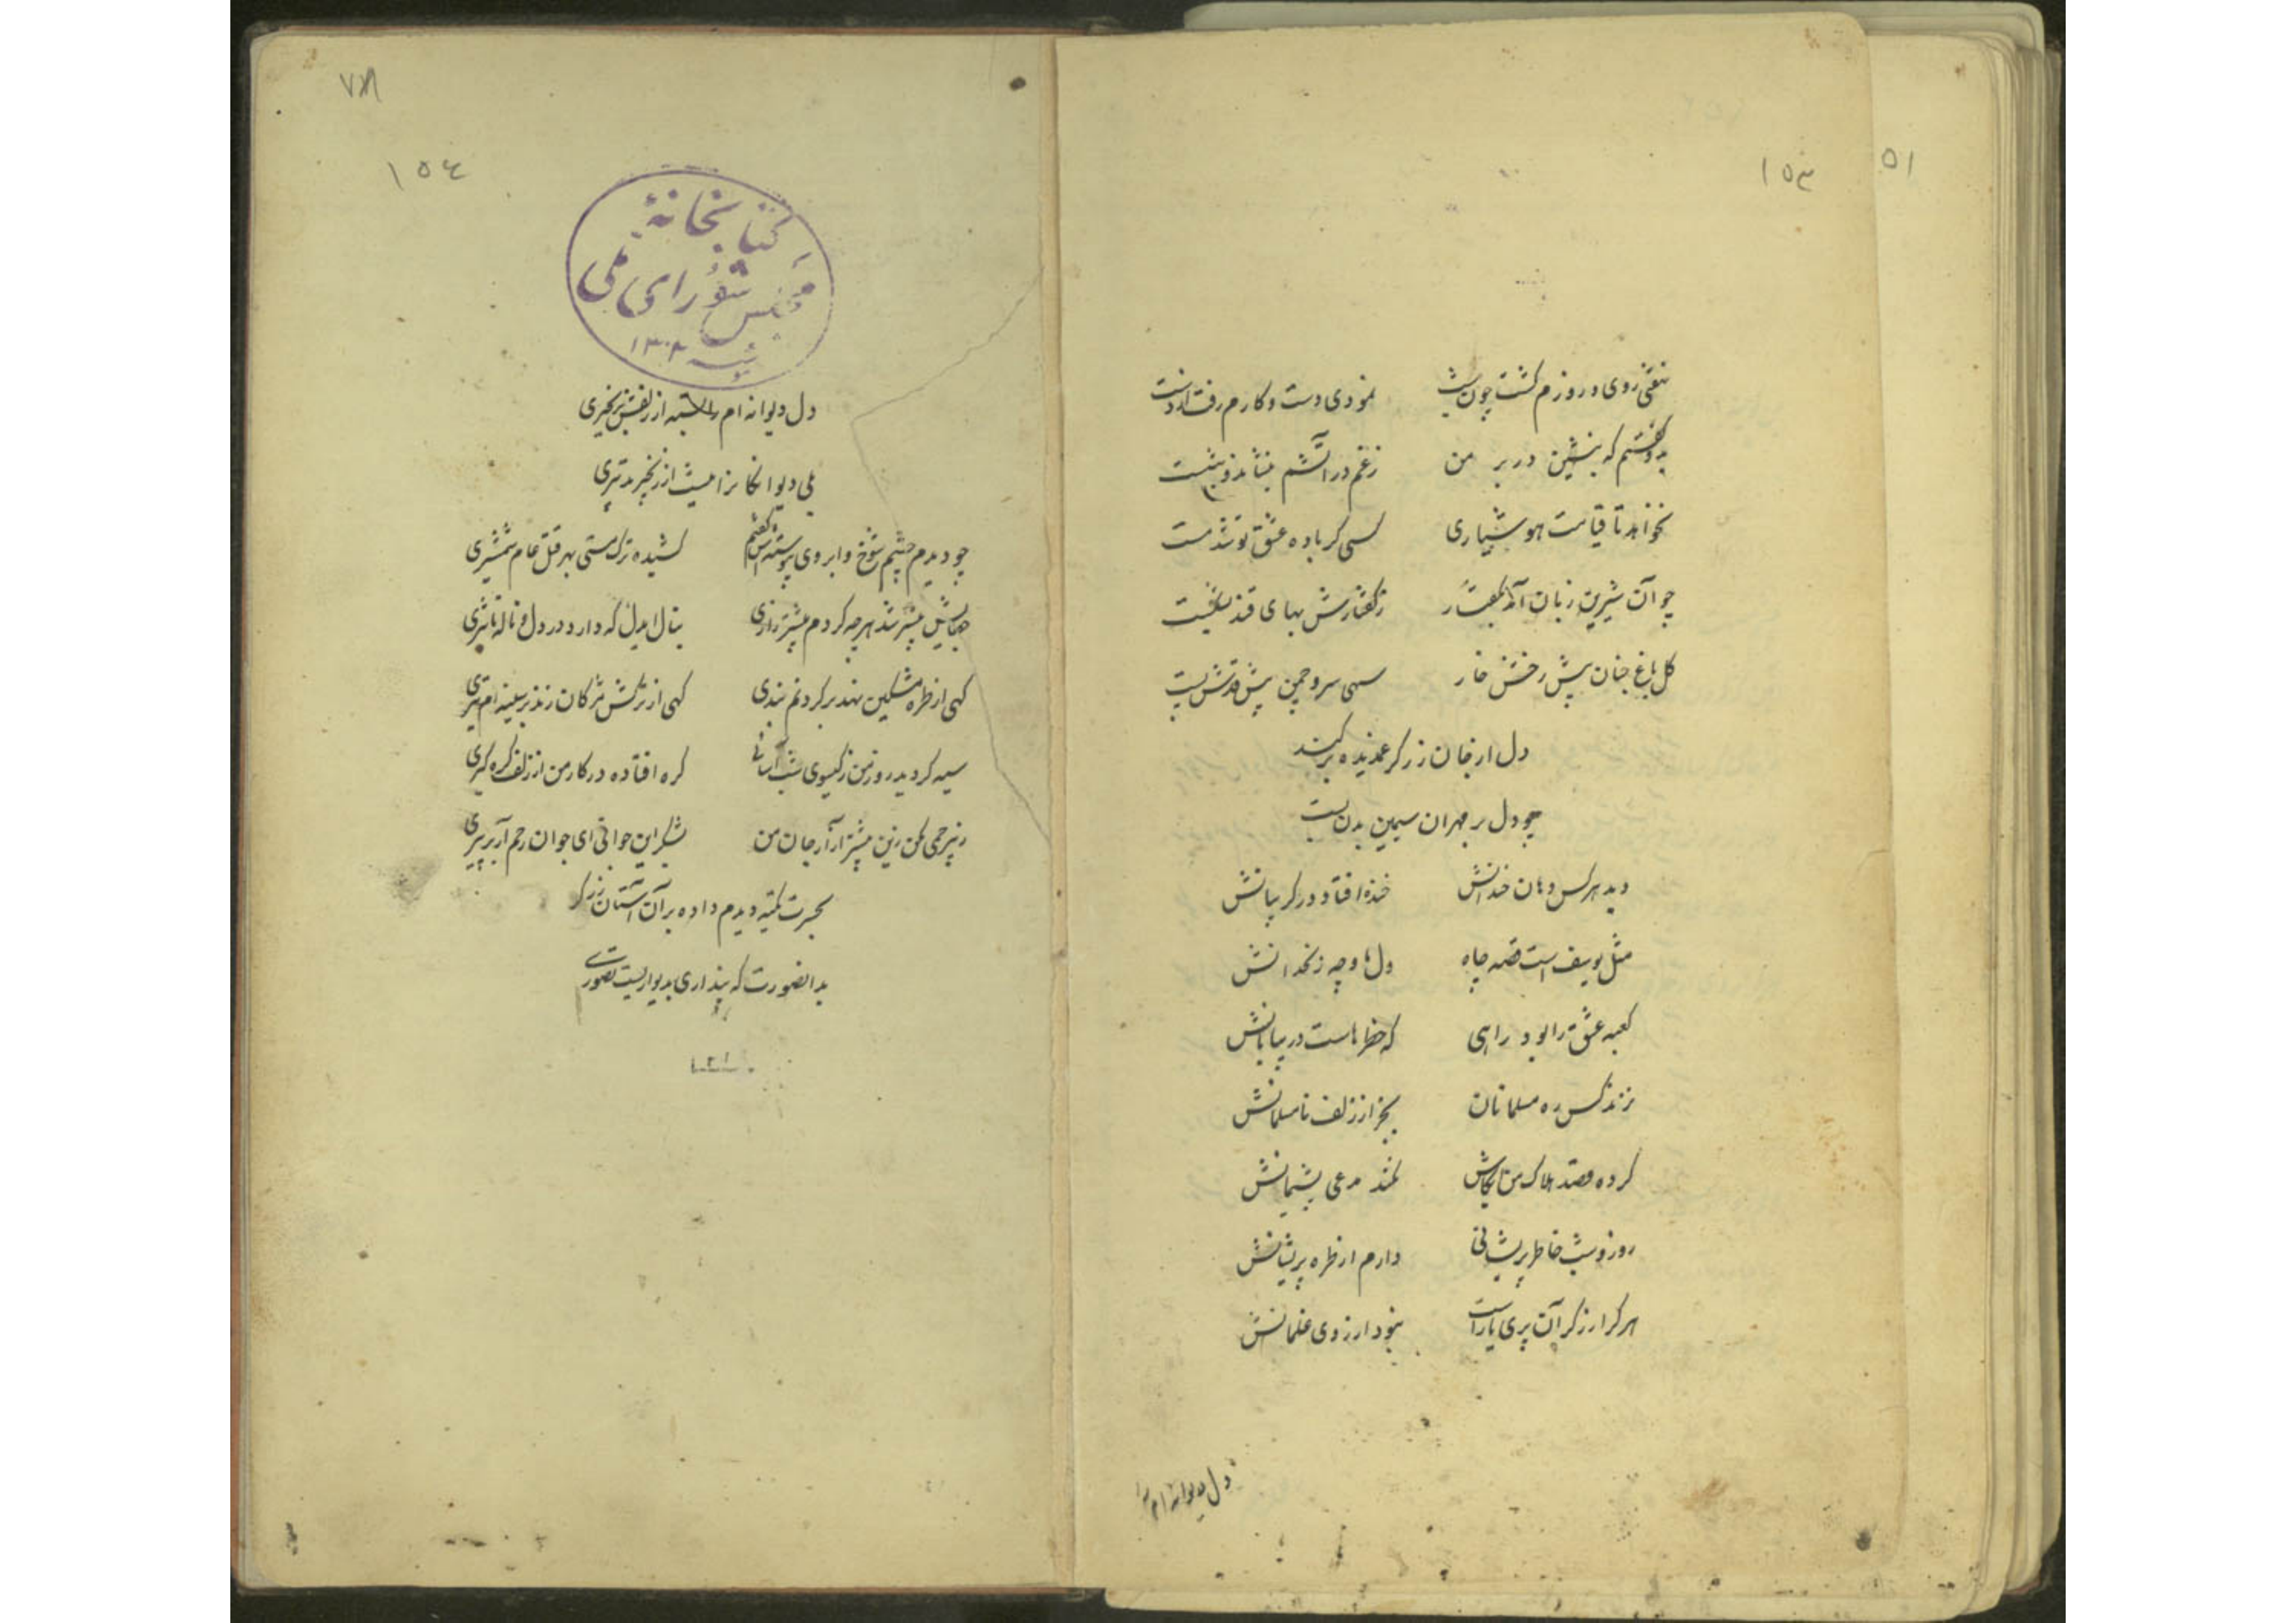 ۱۵۳
۵۱
نهفتی روی و روزم گشت چون شب نمودی دست و کارم رفت از دست
بدو گفتم که بنشین در بر من ز غم در آتشم بنشاند و ننشست
نخواهد تا قیامت هوشیاری کسی کز باده عشق تو شد مست
چو آن شیرین زبان آمد بگفتار ز گفتارش بهای قند بشکست
گل باغ جنان پیش رخش خار سهی سرو چمن پیش قدش پست
دل از خان زرگر عهد دیده برکند
چو دل بر مهر آن سیمین بدن بست
دید هر کس دهان خندانش خنده افتاد در گریبانش
مثل یوسف است قصه چاه دلها و چه زنخدانش
کعبه عشق را بود راهی که خطرهاست در بیابانش
نزند کس ره مسلمانان بجز از زلف نامسلمانش
کرده قصد هلاک من ایکاش نکند مدعی پشیمانش
روز و شب خاطر پریشانی دارم از طره پریشانش
هر کرا زرگر آن پری یار است نبود آرزوی غلمانش
دل دیوانه ام را
۷۸
۱۵٤
کتابخانهٔ
مجلس شورای ملی
سنه ۱۳۰۲
دل دیوانه ام را بسته از زلفش بزنجیری
بلی دیوانگانرا نیست از زنجیر تدبیری
چو دیدم چشم شوخ و ابروی پیوسته اش گفتم کشیده ترک مستی بهر قتل عام شمشیری
جفایش بیشتر شد هر چه کردم بیشتر زاری بنال ایدل که دارد درد دل و ناله تاثیری
گهی از طره مشکین نهد بر گردنم بندی گهی از ترکش مژگان زند بر سینه ام تیری
سیه گردید روز من ز گیسوی شب آسائی گره افتاده در کار من از زلف گره گیری
رحمی کن زین بیشتر آزار جان من بشکر این جوانی ای جوان رحم آر بر پیری
بحیرت تکیه دیدم داده بر آن آستان زرگر
بدانصورت که پنداری بدیواریست تصویری